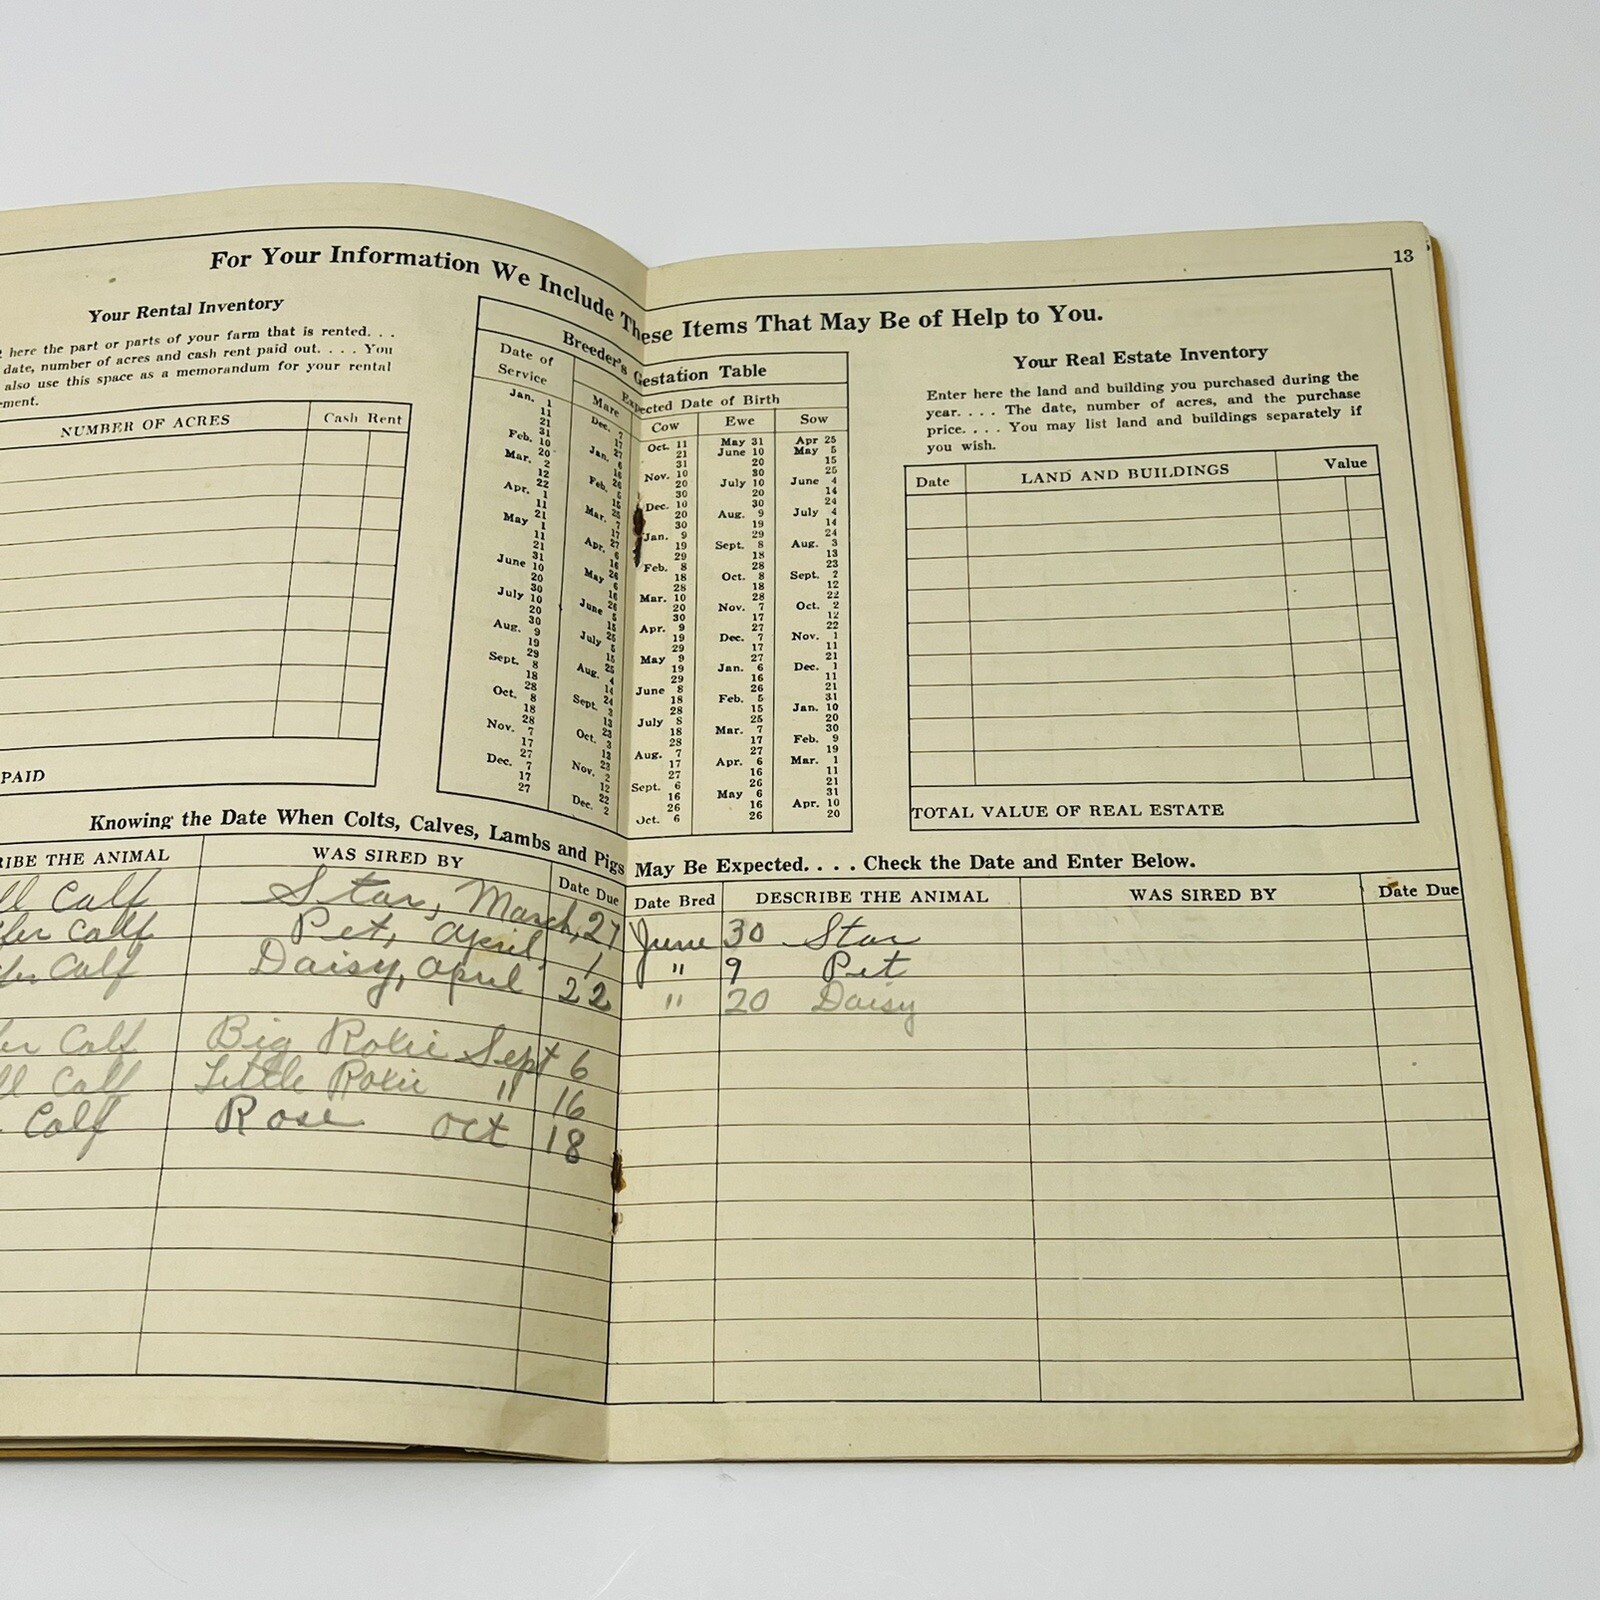 13
For Your Information We Include These Items That May Be of Help to You.
Your Rental Inventory
here the part or parts of your farm that is rented. . .
date, number of acres and cash rent paid out. . . . You
also use this space as a memorandum for your rental
ement.
NUMBER OF ACRES Cash Rent
PAID
Breeder's Gestation Table
Date of Service Expected Date of Birth
Mare Cow Ewe Sow
Jan. 1 Dec. 7 Oct. 11 May 31 Apr 25
11 17 21 June 10 May 5
21 27 31 20 15
31 Jan. 6 Nov. 10 30 25
Feb. 10 16 20 July 10 June 4
20 26 30 20 14
Mar. 2 Feb. 5 Dec. 10 30 24
12 15 20 Aug. 9 July 4
22 25 30 19 14
Apr. 1 Mar. 7 Jan. 9 29 24
11 17 19 Sept. 8 Aug. 3
21 27 29 18 13
May 1 Apr. 6 Feb. 8 28 23
11 16 18 Oct. 8 Sept. 2
21 26 28 18 12
31 May 6 Mar. 10 28 22
June 10 16 20 Nov. 7 Oct. 2
20 26 30 17 12
30 June 5 Apr. 9 27 22
July 10 15 19 Dec. 7 Nov. 1
20 25 29 17 11
30 July 5 May 9 27 21
Aug. 9 15 19 Jan. 6 Dec. 1
19 25 29 16 11
29 Aug. 4 June 8 26 21
Sept. 8 14 18 Feb. 5 31
18 24 28 15 Jan. 10
28 Sept. 3 July 8 25 20
Oct. 8 13 18 Mar. 7 30
18 23 28 17 Feb. 9
28 Oct. 3 Aug. 7 27 19
Nov. 7 13 17 Apr. 6 Mar. 1
17 23 27 16 11
27 Nov. 2 Sept. 6 26 21
Dec. 7 12 16 May 6 31
17 22 26 16 Apr. 10
27 Dec. 2 Oct. 6 26 20
Your Real Estate Inventory
Enter here the land and building you purchased during the
year. . . . The date, number of acres, and the purchase
price. . . . You may list land and buildings separately if
you wish.
Date LAND AND BUILDINGS Value
TOTAL VALUE OF REAL ESTATE
Knowing the Date When Colts, Calves, Lambs and Pigs May Be Expected. . . . Check the Date and Enter Below.
RIBE THE ANIMAL WAS SIRED BY Date Due
ll Calf Star, March, 27
fer Calf Pet, April, 1
fer Calf Daisy, April 22
er Calf Big Roxie Sept 6
ll Calf Little Roxie " 16
Calf Rose Oct 18
Date Bred DESCRIBE THE ANIMAL WAS SIRED BY Date Due
June 30 Star
" 9 Pet
" 20 Daisy